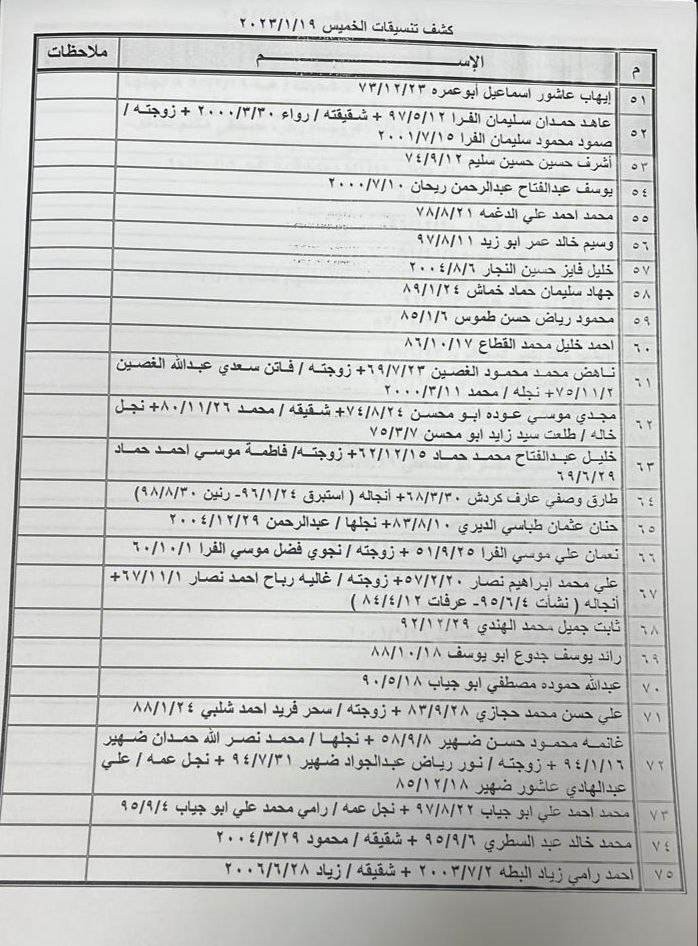 كشف تنسيقات الخميس ٢٠٢٣/١/١٩
م الإســـم ملاحظات
٥١ إيهاب عاشور اسماعيل أبوعمره ٧٣/١٢/٢٣
٥٢ عاهد حمدان سليمان الفرا ٩٧/٥/١٢ + شقيقته / رواء ٢٠٠٠/٣/٣٠ + زوجته /
صمود محمود سليمان الفرا ٢٠٠١/٧/١٥
٥٣ أشرف حسين حسين سليم ٧٤/٩/١٢
٥٤ يوسف عبدالفتاح عبدالرحمن ريحان ٢٠٠٠/٧/١٠
٥٥ محمد احمد علي الدغمه ٧٨/٨/٢١
٥٦ وسيم خالد عمر ابو زيد ٩٧/٨/١١
٥٧ خليل فايز حسين النجار ٢٠٠٤/٨/٦
٥٨ جهاد سليمان حماد خماش ٨٩/١/٢٤
٥٩ محمود رياض حسن طموس ٨٥/١/٦
٦٠ احمد خليل محمد القطاع ٨٦/١٠/١٧
٦١ ناهض محمد محمود الغصين ٦٩/٧/٢٣+ زوجته / فاتن سعدي عبدالله الغصين
٧٥/١١/٢+ نجله / محمد ٢٠٠٠/٣/١١
٦٢ مجدي موسي عوده ابو محسن ٧٤/٨/٢٤+ شقيقه / محمد ٨٠/١١/٢٦+ نجل
خاله / طلعت سيد زايد ابو محسن ٧٥/٣/٧
٦٣ خليل عبدالفتاح محمد حماد ٦٢/١٢/١٥+ زوجته/ فاطمة موسي احمد حماد
٦٩/٦/٢٩
٦٤ طارق وصفي عارف كردش ٦٨/٣/٣٠+ أنجاله ( استبرق ٩٦/١/٢٤- رنين ٩٨/٨/٣٠)
٦٥ حنان عثمان طباسي الديري ٨٣/٨/١٠+ نجلها / عبدالرحمن ٢٠٠٤/١٢/٢٩
٦٦ نعمان علي موسي الفرا ٥١/٩/٢٥ + زوجته / نجوي فضل موسي الفرا ٦٠/١٠/١
٦٧ علي محمد ابراهيم نصار ٥٧/٢/٢٠+ زوجته / غاليه رباح احمد نصار ٦٧/١١/١+
أنجاله ( نشأت ٩٥/٦/٤- عرفات ٨٤/٤/١٢ )
٦٨ ثابت جميل محمد الهندي ٩٢/١٢/٢٩
٦٩ رائد يوسف جدوع ابو يوسف ٨٨/١٠/١٨
٧٠ عبدالله حموده مصطفي ابو جياب ٩٠/٥/١٨
٧١ علي حسن محمد حجازي ٨٣/٩/٢٨ + زوجته / سحر فريد احمد شلبي ٨٨/١/٢٤
٧٢ غانمه محمود حسن ضهير ٥٨/٩/٨ + نجلها / محمد نصر الله حمدان ضهير
٩٤/١/١٦ + زوجته / نور رياض عبدالجواد ضهير ٩٤/٧/٣١ + نجل عمه / علي
عبدالهادي عاشور ضهير ٨٥/١٢/١٨
٧٣ محمد احمد علي ابو جياب ٩٧/٨/٢٢ + نجل عمه / رامي محمد علي ابو جياب ٩٥/٩/٤
٧٤ محمد خالد عبد السطري ٩٥/٩/٦ + شقيقه / محمود ٢٠٠٤/٣/٢٩
٧٥ احمد رامي زياد البطه ٢٠٠٣/٧/٢ + شقيقه / زياد ٢٠٠٦/٦/٢٨